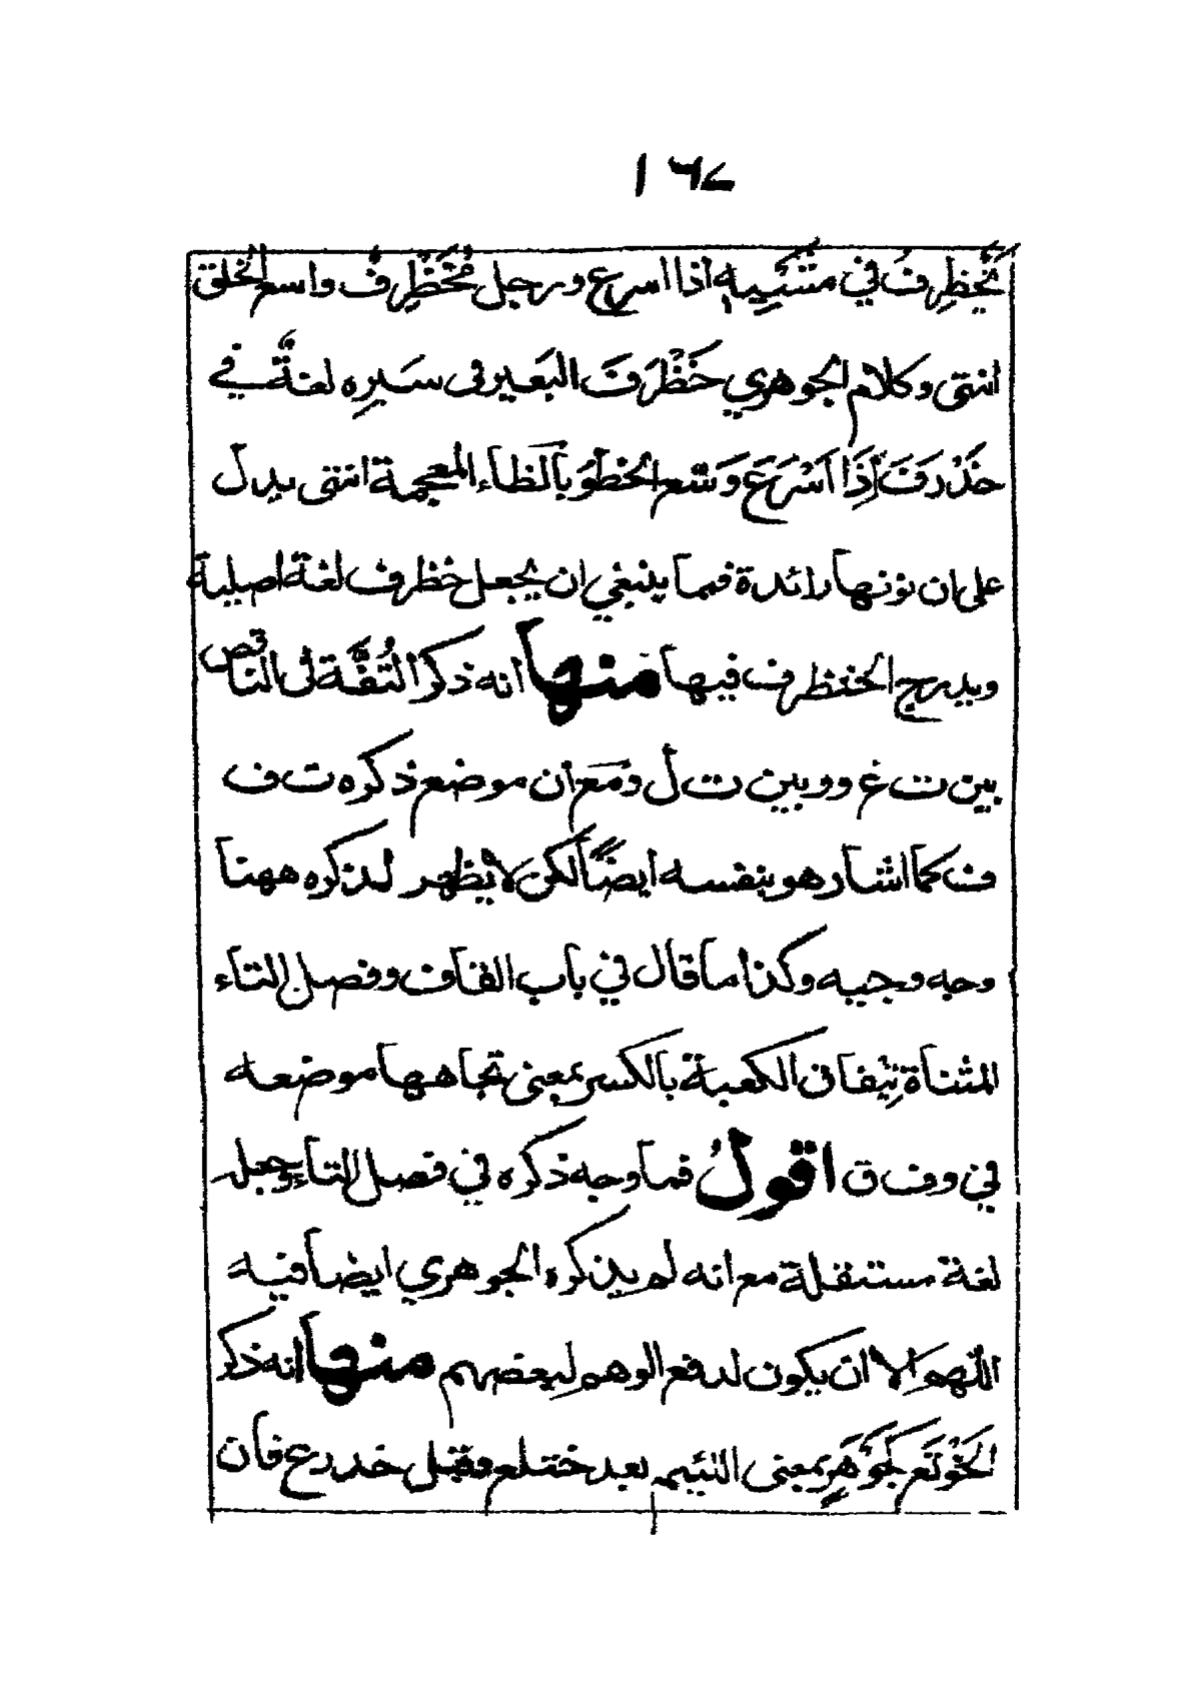 ١٦٧
يُخَظرِفُ في مَشْيِه اذا اسرع ورجل مُخَظْرِفٌ واسع الخلق
انتهى وكلام الجوهري خَظْرَفَ البَعَير فى سَيرِه لغةٌ في
خَذْرَفَ إِذَا اَسْرَعَ وَسّع الخَطْوَ بالظاء المعجمة انتهى يدل
على ان نونها زائدة فما ينبغي ان يجعل خظرف لغة اصلية
ويدرج الخنظرف فيها منها انه ذكر التُفَّة في الناقص
بين ت غ و وبين ت ل و مَع ان موضع ذكره ت ف
ف كما اشار هو بنفسه ايضًا لكن لا يظهر لذكره ههنا
وجه وجيه وكذا ما قال في باب القاف وفصل التاء
المثناة تِيفاق الكعبة بالكسر بمعنى تجاهها موضعه
في وف ق اقولُ فما وجه ذكره في فصل التاء وجعله
لغة مستقلة مع انه لم يذكره الجوهري ايضا فيه
اللهم الا ان يكون لدفع الوهم لبعضهم منها انه ذكر
الخَوْتَع كَجَوْهَرٍ بمعنى اللئيم بعد ختلع وقبل خدرع فان